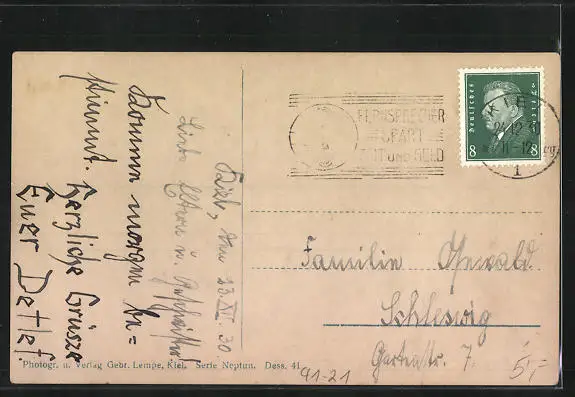 Kiel, den 23. XII. 30.
Liebe Eltern u. Geschwister!
Komme morgen be=
stimmt. Herzliche Grüsse
Euer Detlef.
FERNSPRECHER
SPART
ZEIT UND GELD
KIEL
11-12
1
Deutsches Reich
8 8
Familie
Schleswig
Gartenstr. 7.
5,-
41-21
Photogr. u. Verlag Gebr. Lempe, Kiel. Serie Neptun. Dess. 41